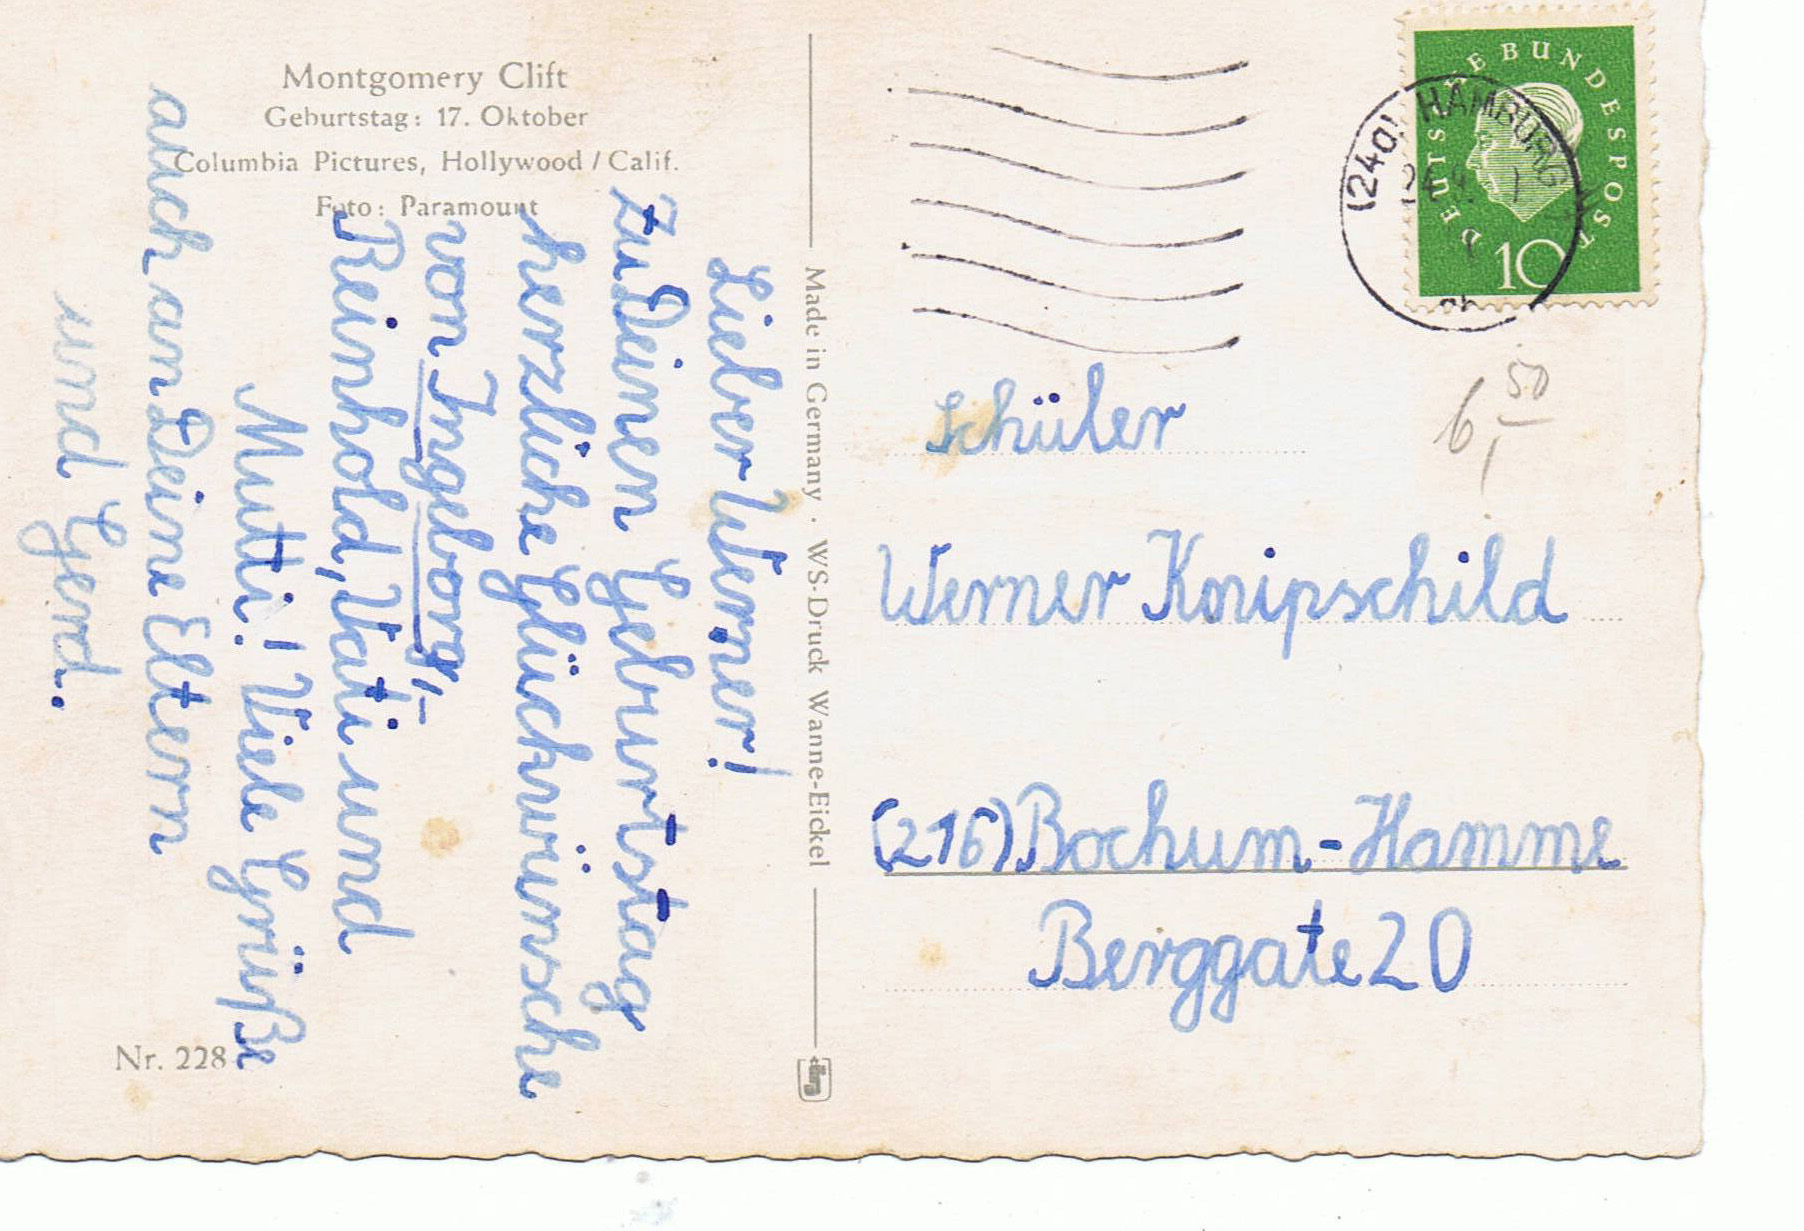 Montgomery Clift
Geburtstag: 17. Oktober
Columbia Pictures, Hollywood / Calif.
Foto: Paramount
Lieber Werner!
Zu Deinen Geburtstag
herzliche Glückwünsche
von Ingeborg,-
Reinhold, Vati und
Mutti! Viele Grüße
auch an Deine Eltern
und Gerd.
Nr. 228
Made in Germany · WS-Druck Wanne-Eickel
DEUTSCHE BUNDESPOST
10
(24a) HAMBURG
6,50
Schüler
Werner Knipschild
(216) Bochum-Hamme
Berggate 20